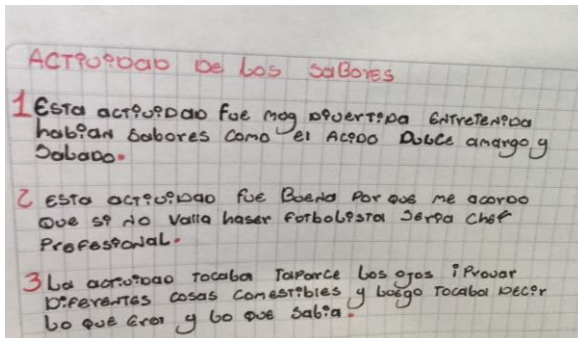 ACTIVIDAD DE LOS SABORES
1 Esta actividad fue moy divertida entretenida
habian sabores como el acido dulce amargo y
salado.
2 Esta actividad fue buena por que me acordo
que si no valla haser fotbolista seria chef
profesional.
3 La actividad tocaba taparce los ojos i provar
diferentes cosas comestibles y luego tocaba decir
lo que era y lo que sabia.